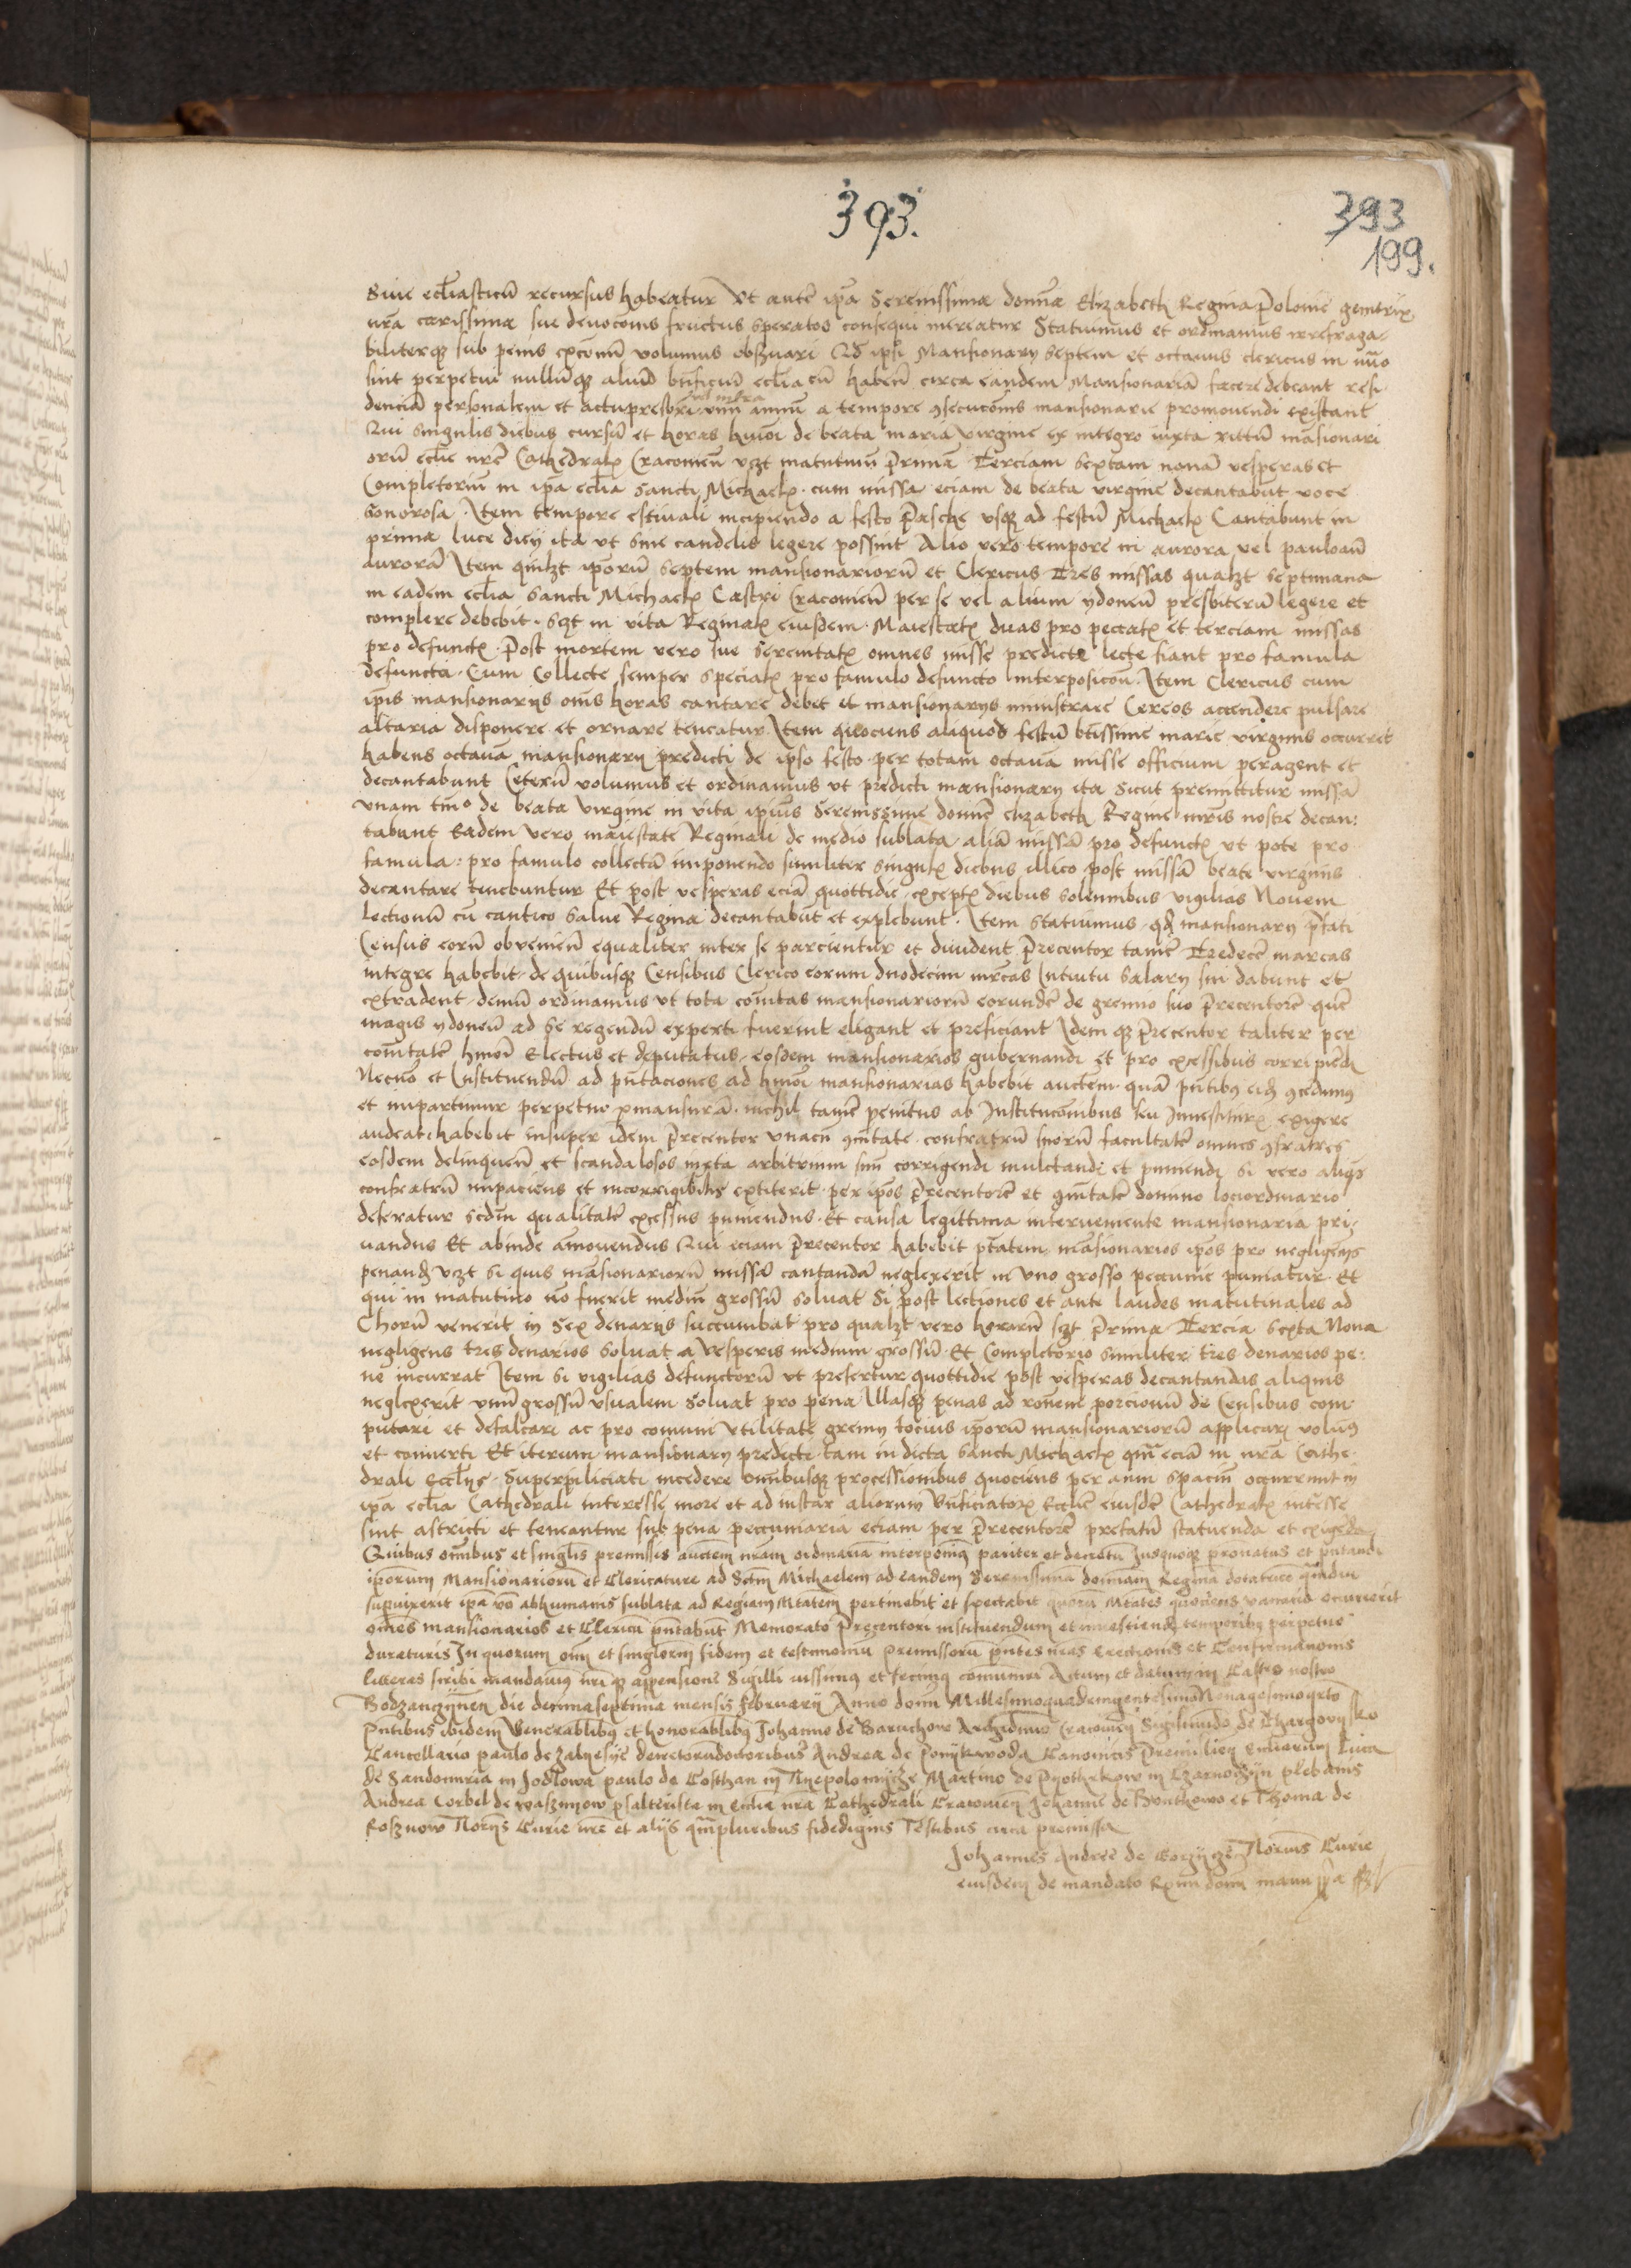 393.
393
199.
Siue eccl̄iasticū recursus habeatur Vt autē ip̄a Serenissima domna Elizabeth Regina Polonie genitrix
nr̄a carissima sue deuocōnis fructus speratos consequi mereatur Statuimus et ordinamus irrefraga-
biliterqȝ sub penis excōnū volumus obseruari Qd̄ ipsi Mansionarij septem et octauus clericus in
sint perpetui nullūqȝ aliud bn̄ficiū eccl̄iacū haben̄ circa eandem Mansionariā facere debeant resi-
denciā personalem et actu presbr̄i vel infra annū a tempore ꝯsecucōnis mansionarie promouendi existant
Qui singulis diebus cursū et horas hmōi de beata maria virgine ex integro iuxta rittū māsionari
orū eccl̄ie nr̄e Cathedralꝫ Cracouien̄ vꝫt matutinū primā Terciam sextam nonā vesperas et
Completoriū in ip̄a eccl̄ia Sancti Michaelꝫ cum missa eciam de beata virgine decantabūt voce
sonorosa. Item tempore estiuali incipiendo a festo Pasche vsqȝ ad festū Michaelꝫ Cantabunt in
prima luce diei ita vt sine candelis legere possint Alio vero tempore in aurora vel pauloan̄
aurorā Item quilꝫt ip̄orū septem mansionariorū et Clericus Tres missas qualꝫt septimana
in eadem eccl̄ia Sancti Michaelꝫ Castri Cracouien̄ per se vel alium ydoneū presbiterū legere et
complere debebit. Scꝫt in vita Reginalꝫ eiusdem Maiestatꝫ duas pro peccatꝫ et terciam missas
pro defunctꝫ. Post mortem vero sue Serenitatꝫ omnes misse predicte lecte fiant pro famula
defuncta. Cum Collecte semper specialꝫ pro famulo defuncto interposicōn. Item Clericus cum
ip̄is mansionarijs om̄s horas cantare debet et mansionarijs ministrare Cereos accendere pulsare
altaria disponere et ornare teneatur. Item quociens aliquod festū btissime marie virginis occurret
habens octauā mansionarij predicti de ipso festo per totam octauā misse officium peragent et
decantabunt Ceterū volumus et ordinamus vt predicti mansionarij ita sicut premittitur missā
vnam tm̄o de beata virgine in vita ipsius Serenissime domne Elizabeth Regine mr̄is nostre decan:
tabunt Eadem vero maiestate Reginali de medio sublata aliā missā pro defunctꝫ vt pote pro
famula: pro famulo collectā imponendo similiter singulꝫ diebus illico post missā beate virginis
decantare tenebuntur Et post vesperas eciā quottidie exceptꝫ diebus solennibus vigilias Nouem
lectionū cū cantico Salue Regina decantabūt et explebunt. Item statuimus qd̄ mansionarij p̄fati
Census eorū obuenien̄ equaliter inter se parcientur et diuident Precentor tamē Tredecē marcas
integre habebit de quibusqȝ Censibus Clerico eorum duodecim mr̄cas Intuitu salarij sui dabunt et
extradent demū ordinamus vt tota cōitas mansionariorū eorundē de gremio suo Precentorē quē
magis ydoneū ad se regendū experti fuerint eligant et preficiant Idemqȝ Precentor taliter per
cōitatē hmōi Electus et deputatus eosdem mansionarios gubernandi et pro excessibus corripiēdi
Necnō et Instituendū ad pn̄taciones ad hmōi mansionarias habebit auctem quā pn̄tibus eiꝫ ꝯcedimus
et impartimur perpetuo ꝑmansurā. nichil tamē penitus ab Institucōnibus seu Inuestiturꝫ exigere
audeat: habebit insuper idem Precentor vnacū ꝯitate confratrū suorū facultatē omnes ꝯfratres
eosdem delinquen̄ et scandalosos iuxta arbitrium suū corrigendi mulctandi et puniendi si vero aliqs
confratrū impaciens et incorrigibilis extiterit per ip̄os Precentorē et ꝯitatē domino lociordinario
deferatur sedm̄ qualitatē excessus puniendus. Et causa legittima interueniente mansionaria pri-
uandus Et abinde amouendus Qui eciam Precentor habebit ptatem māsionarios ip̄os pro negligencijs
penandi vꝫt si quis māsionariorū missā cantandā neglexerit in vno grosso pecunie puniatur. Et
qui in matutino nō fuerit mediū grossū soluat Si post lectiones et ante laudes matutinales ad
Chorū venerit in Sex denarijs succumbat pro qualꝫt vero horarū sꝫt Prima Tercia sexta Nona
negligens tres denarios soluat a Vesperis medium grossū. Et Completorio similiter tres denarios pe-
ne incurrat Item si vigilias defunctorū vt prefertur quottidie post vesperas decantandas aliquis
neglexerit vnū grossū vsualem soluat pro pena Illasqȝ penas ad rōnem porcionū de Censibus com-
putari et defalcari ac pro comuni vtilitate gremij tocius ip̄orū mansionariorū applicari volumꝫ
et conuerti Et iterum mansionarij predicte tam in dicta Sancti Michaelꝫ qm̄ eciā in nr̄a Cathe-
drali Eccl̄ijs. Superpiliciati incedere omnibusqȝ processionibus quociens per anni spaciū occurrerint in
ip̄a eccl̄ia Cathedrali interesse more et ad instar aliorum bn̄ficiatorꝫ Eccl̄ie eiusdē Cathedralꝫ int̄esse
sint astricti et teneantur sub pena peccuniaria eciam per Precentorē prefatū statuenda et exigēda
Quibus omībus et singl̄is premissis auctem nr̄am ordinariā interponimꝫ pariter et decretū Iusqueqȝ pron̄atus et pn̄tandi
ip̄orum Mansionariorū et Clericature ad Sctm̄ Michaelem ad eandem Serenissimā dominam Reginā dotatricē qm̄diu
supuixerit ip̄a vō abhumanis sublata ad Regiam Mtatem pertinebit et spectabit quorū Mtates quociens vacacio occurrerit
om̄es mansionarios et Clericū pn̄tabunt Memorato Precentori instituendum et inuestiendꝫ temporibꝫ perpetuo
duraturis In quorum om̄ et singlorū fidem et testimoniū premissorū pn̄tes nr̄as Erectionis et Confirmacionis
litteras scribi mandauimꝫ nr̄iqȝ appensione Sigilli iussimus et fecimꝫ conmuniri Actum et datum in Castro nostro
Bodzanczijnen̄ die decimaseptima mensis februarij Anno domī MillesimoquadringentesimoNonagesimoqrto
Pn̄tibus ibidem Venerablibꝫ et honorablibꝫ Johanne de Baruchow Archidn̄o Cracouien̄ Sigismūdo de Thargovijsko
Cancellario paulo de Zalijesije decretorūdoctoribus Andrea de Ponijkwoda Canonicis Premislien̄ Eccl̄iarum Luca
de Sandomiria in Jodlowa paulo de Costhan in Nijepolomijcze Martino de Pyothrkow in Czarnoczijn plebanis
Andrea Corbel de waszniow psalterista in Eccl̄ia nr̄a Cathedrali Cracouien̄ Johanne de Bonthkowo et Thoma de
Rosznow Norijs Curie nr̄e et alijs qm̄pluribus fidedignis Testibus circa premissa
Johannes Andree de Gorzijcze Norius Curie
eiusdem de mandato Rmi domī manu ppa sst